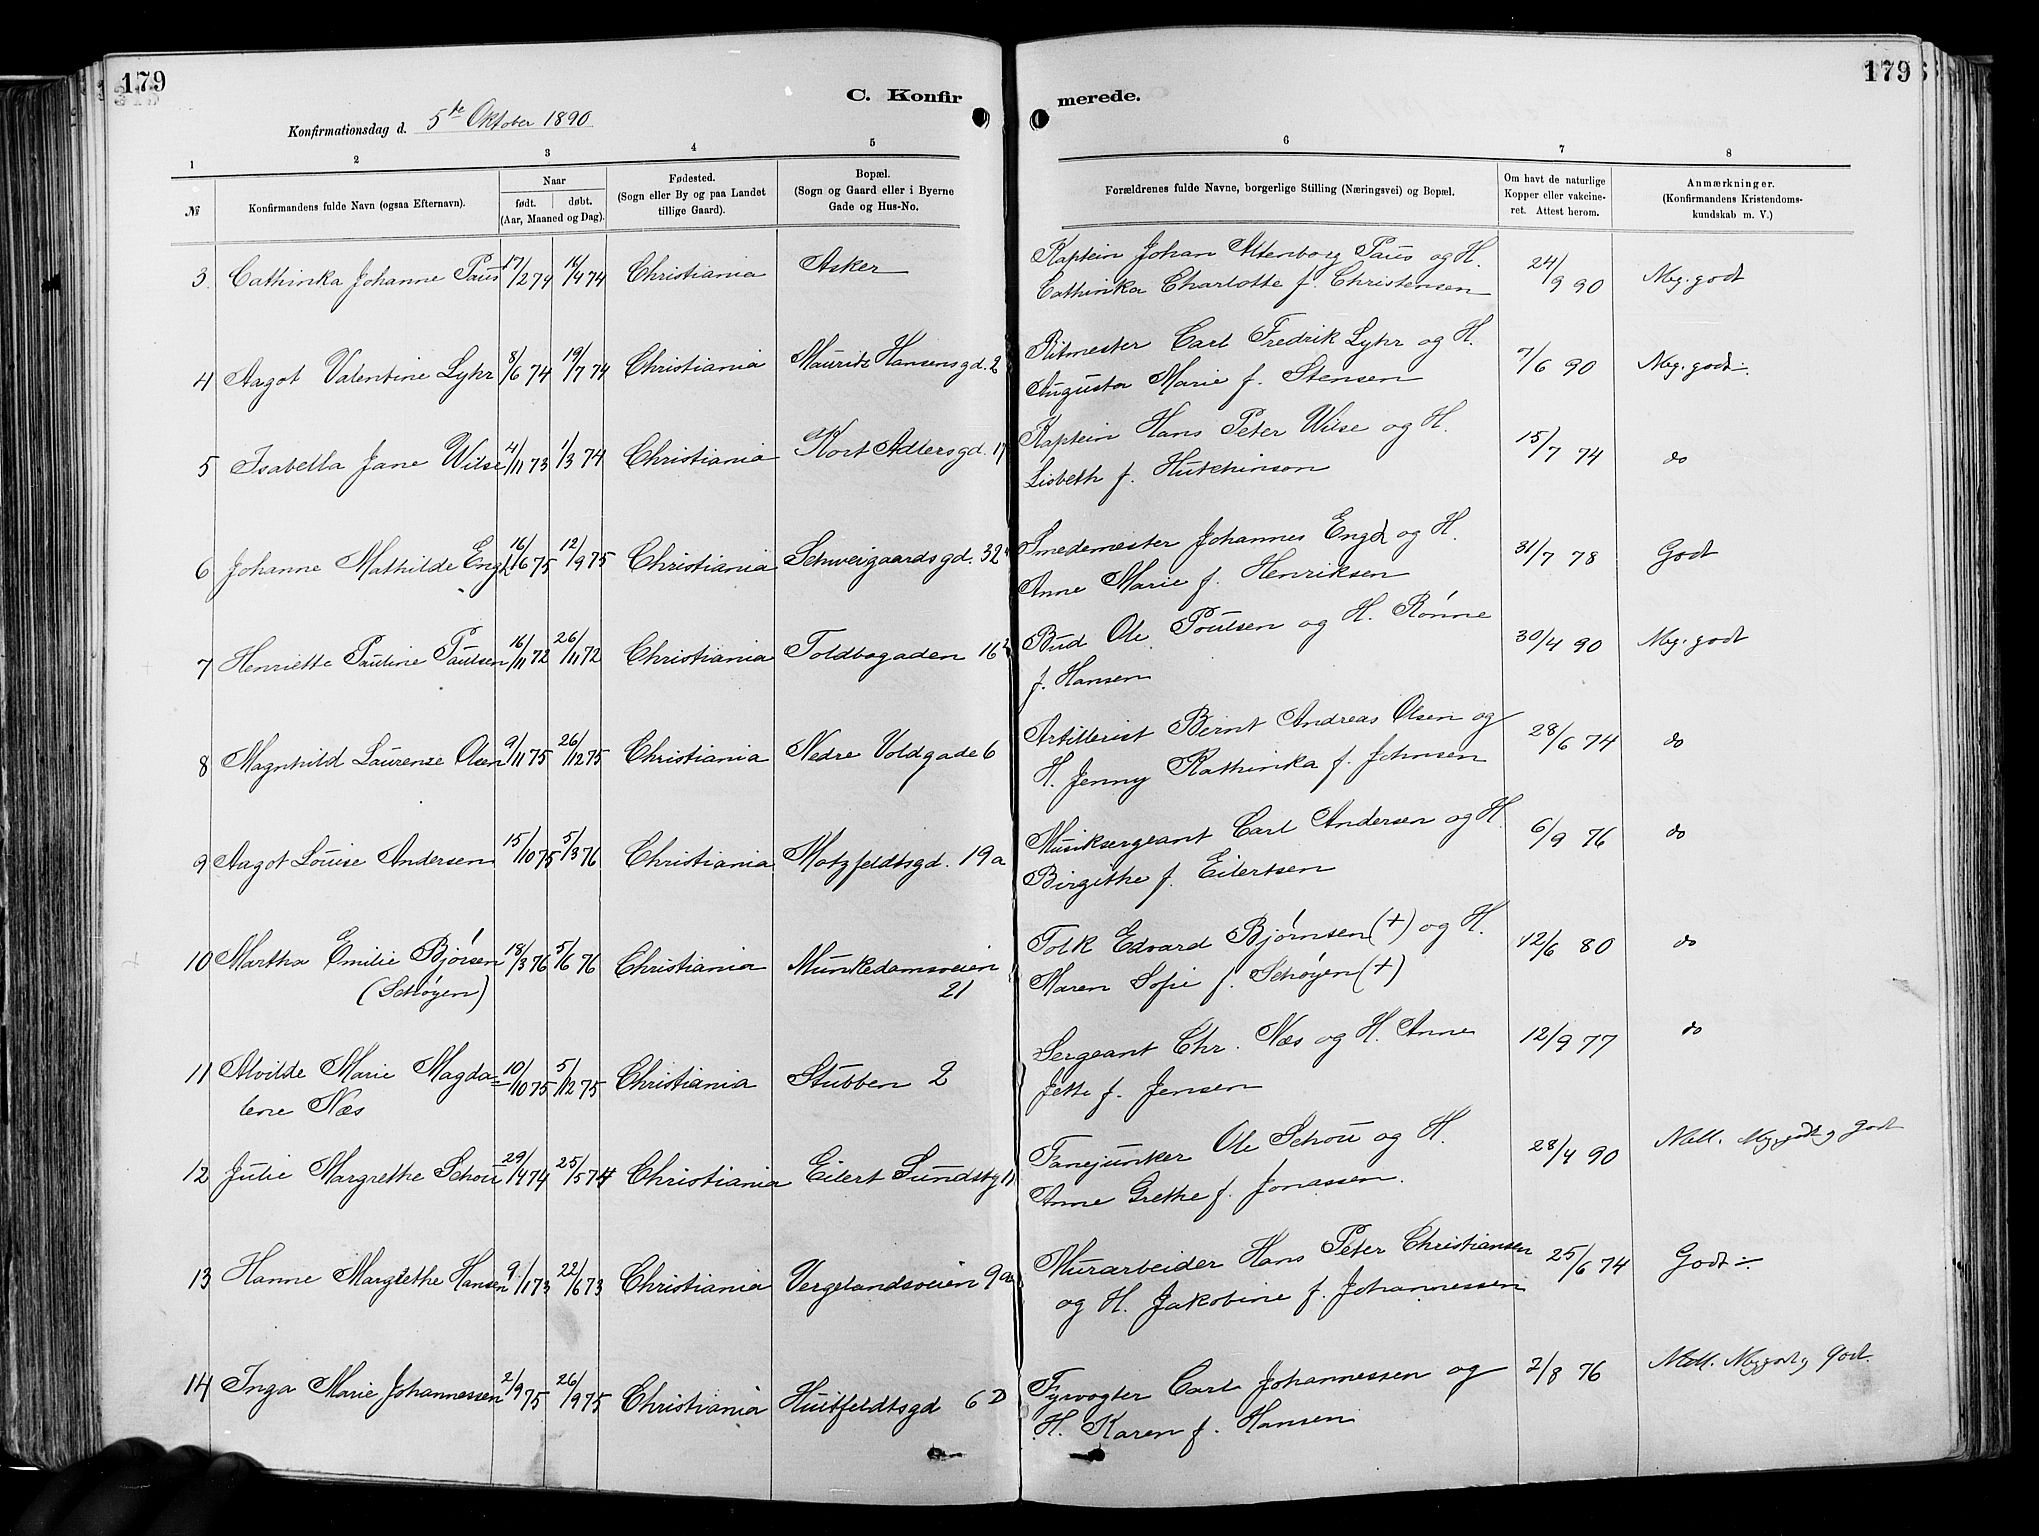 179
179
C. Konfir
merede.
Konfirmationsdag d. 5te Oktober 1890
1
2
3
4
5
6
7
8
№
Konfirmandens fulde Navn (ogsaa Efternavn).
Naar
født.
døbt.
(Aar, Maaned og Dag).
Fødested.
(Sogn eller By og paa Landet
tillige Gaard).
Bopæl.
(Sogn og Gaard eller i Byerne
Gade og Hus-No.
Forældrenes fulde Navne, borgerlige Stilling (Næringsvei) og Bopæl.
Om havt de naturlige
Kopper eller vakcine-
ret. Attest herom.
Anmærkninger.
(Konfirmandens Kristendoms-
kundskab m. V.)
3 Cathinka Johanne Paus 17/2 74 14/4 74 Christiania Asker Kaptein Johan Altenborg Paus og H. 24/9 90 Meg. godt
Cathinka Charlotte f. Christensen
4 Aagot Valentine Lyhr 8/6 74 19/7 74 Christiania Maurits Hansens gd. 2 Ritmester Carl Fredrik Lyhr og H. 7/6 90 Meg. godt÷
Augusta Marie f. Stensen
5 Isabella Jane Wilse 4/11 73 1/3 74 Christiania Kort Adlers gd. 17 Kaptein Hans Peter Wilse og H. 15/7 74 do
Lisbeth f. Hutchinson
6 Johanne Mathilde Engh 16/6 75 12/9 75 Christiania Schweigaards gd. 32 Smedemester Johannes Engh og H. 31/7 78 Godt
Anne Marie f. Henriksen
7 Henriette Pauline Paulsen 16/11 72 26/11 72 Christiania Toldbogaden 16 Bud Ole Poulsen og H. Rønne 30/4 90 Meg. godt
f. Hansen
8 Magnhild Laurenze Olsen 9/11 75 26/12 75 Christiania Nedre Voldgade 6 Artillerist Bernt Andreas Olsen og 28/6 74 do
H. Jenny Kathinka f. Johnsen
9 Aagot Louise Andersen 15/10 75 5/3 76 Christiania Motzfeldtsgd. 19a Musiksergeant Carl Andersen og H. 6/9 76 do
Birgithe f. Eilertsen
10 Martha Emilie Bjørsen 18/3 76 5/6 76 Christiania Munkedamsveien Tolk Edvard Bjørnsen (+) og H. 12/6 80 do
(Schøyen) 21 Maren Sofie f. Schøyen (+)
11 Alvilde Marie Magda= 10/10 75 5/12 75 Christiania Stubben 2 Sergeant Chr. Næs og H. Anne 12/9 77 do
lene Næs Jette f. Jensen
12 Julie Margrethe Schou 29/4 74 25/5 74 Christiania Eilert Sundstg Fanejunker Ole Schou og H. 28/4 90 Mell. Meg. godt og Godt
Anne Grethe f. Jonassen.
13 Hanne Margrethe Hansen 9/1 73 22/6 73 Christiania Vergelandsveien 9a Murarbeider Hans Peter Christiansen 25/6 74 Godt÷
og H. Jakobine f. Johannessen
14 Inga Marie Johannessen 2/9 75 26/9 75 Christiania Huitfeldtsgd 6 D Fyrvogter Carl Johannessen og 2/8 76 Mell. Meg godt og Godt.
H. Karen f. Hansen